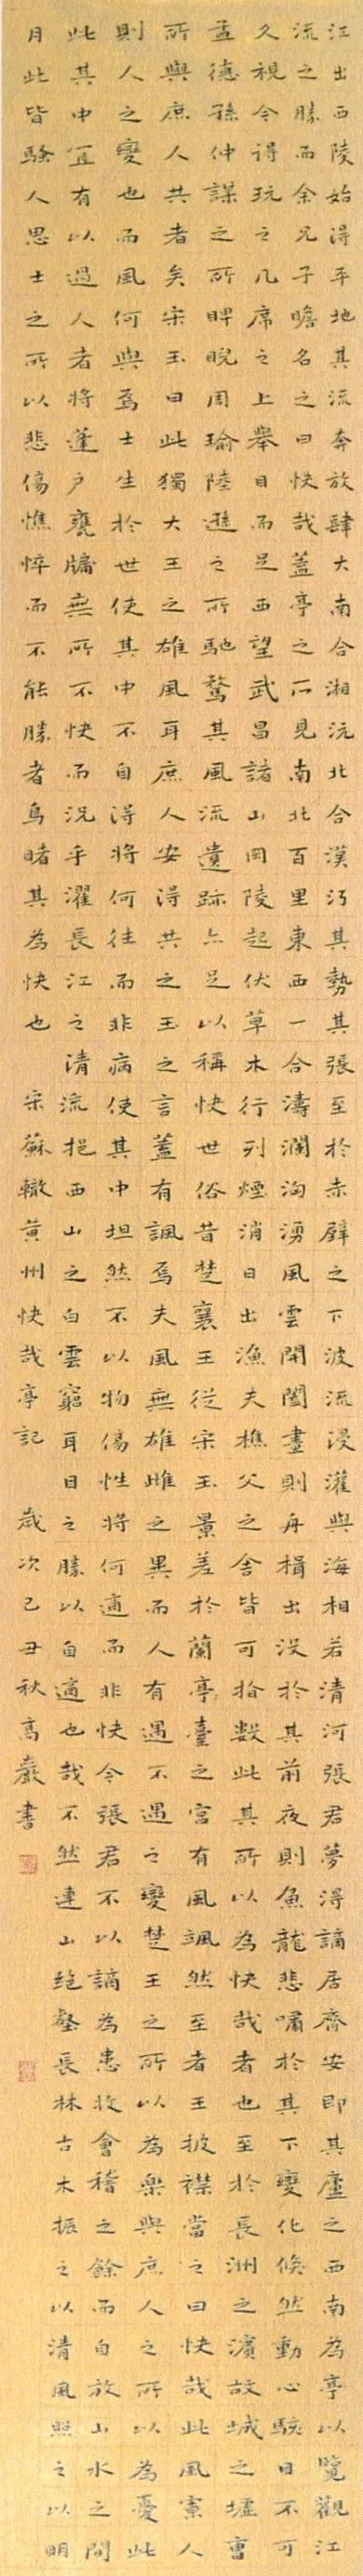 江出西陵始得平地其流奔放肆大南合湘沅北合漢沔其勢其張至於赤壁之下波流浸灌與海相若清河張君夢得謫居齊安即其廬之西南為亭以覽觀江
流之勝而余兄子瞻名之曰快哉蓋亭之所見南北百里東西一合濤瀾洶湧風雲開闔晝則舟楫出沒於其前夜則魚龍悲嘯於其下變化倏然動心駭目不可
久視今得玩之几席之上舉目而足西望武昌諸山岡陵起伏草木行列煙消日出漁夫樵父之舍皆可指數此其所以為快哉者也至於長洲之濱故城之墟曹
孟德孫仲謀之所睥睨周瑜陸遜之所馳騖其風流遺跡亦足以稱快世俗昔楚襄王從宋玉景差於蘭亭臺之宮有風颯然至者王披襟當之曰快哉此風寡人
所與庶人共者矣宋玉曰此獨大王之雄風耳庶人安得共之玉之言蓋有諷焉夫風無雄雌之異而人有遇不遇之變楚王之所以為樂與庶人之所以為憂此
則人之變也而風何與焉士生於世使其中不自得將何往而非病使其中坦然不以物傷性將何適而非快今張君不以謫為患收會稽之餘而自放山水之間
此其中宜有以過人者將蓬戶甕牖無所不快而況乎濯長江之清流挹西山之白雲窮耳目之勝以自適也哉不然連山絕壑長林古木振之以清風照之以明
月此皆騷人思士之所以悲傷憔悴而不能勝者烏睹其為快也 宋蘇轍黃州快哉亭記 歲次己丑秋高嚴書